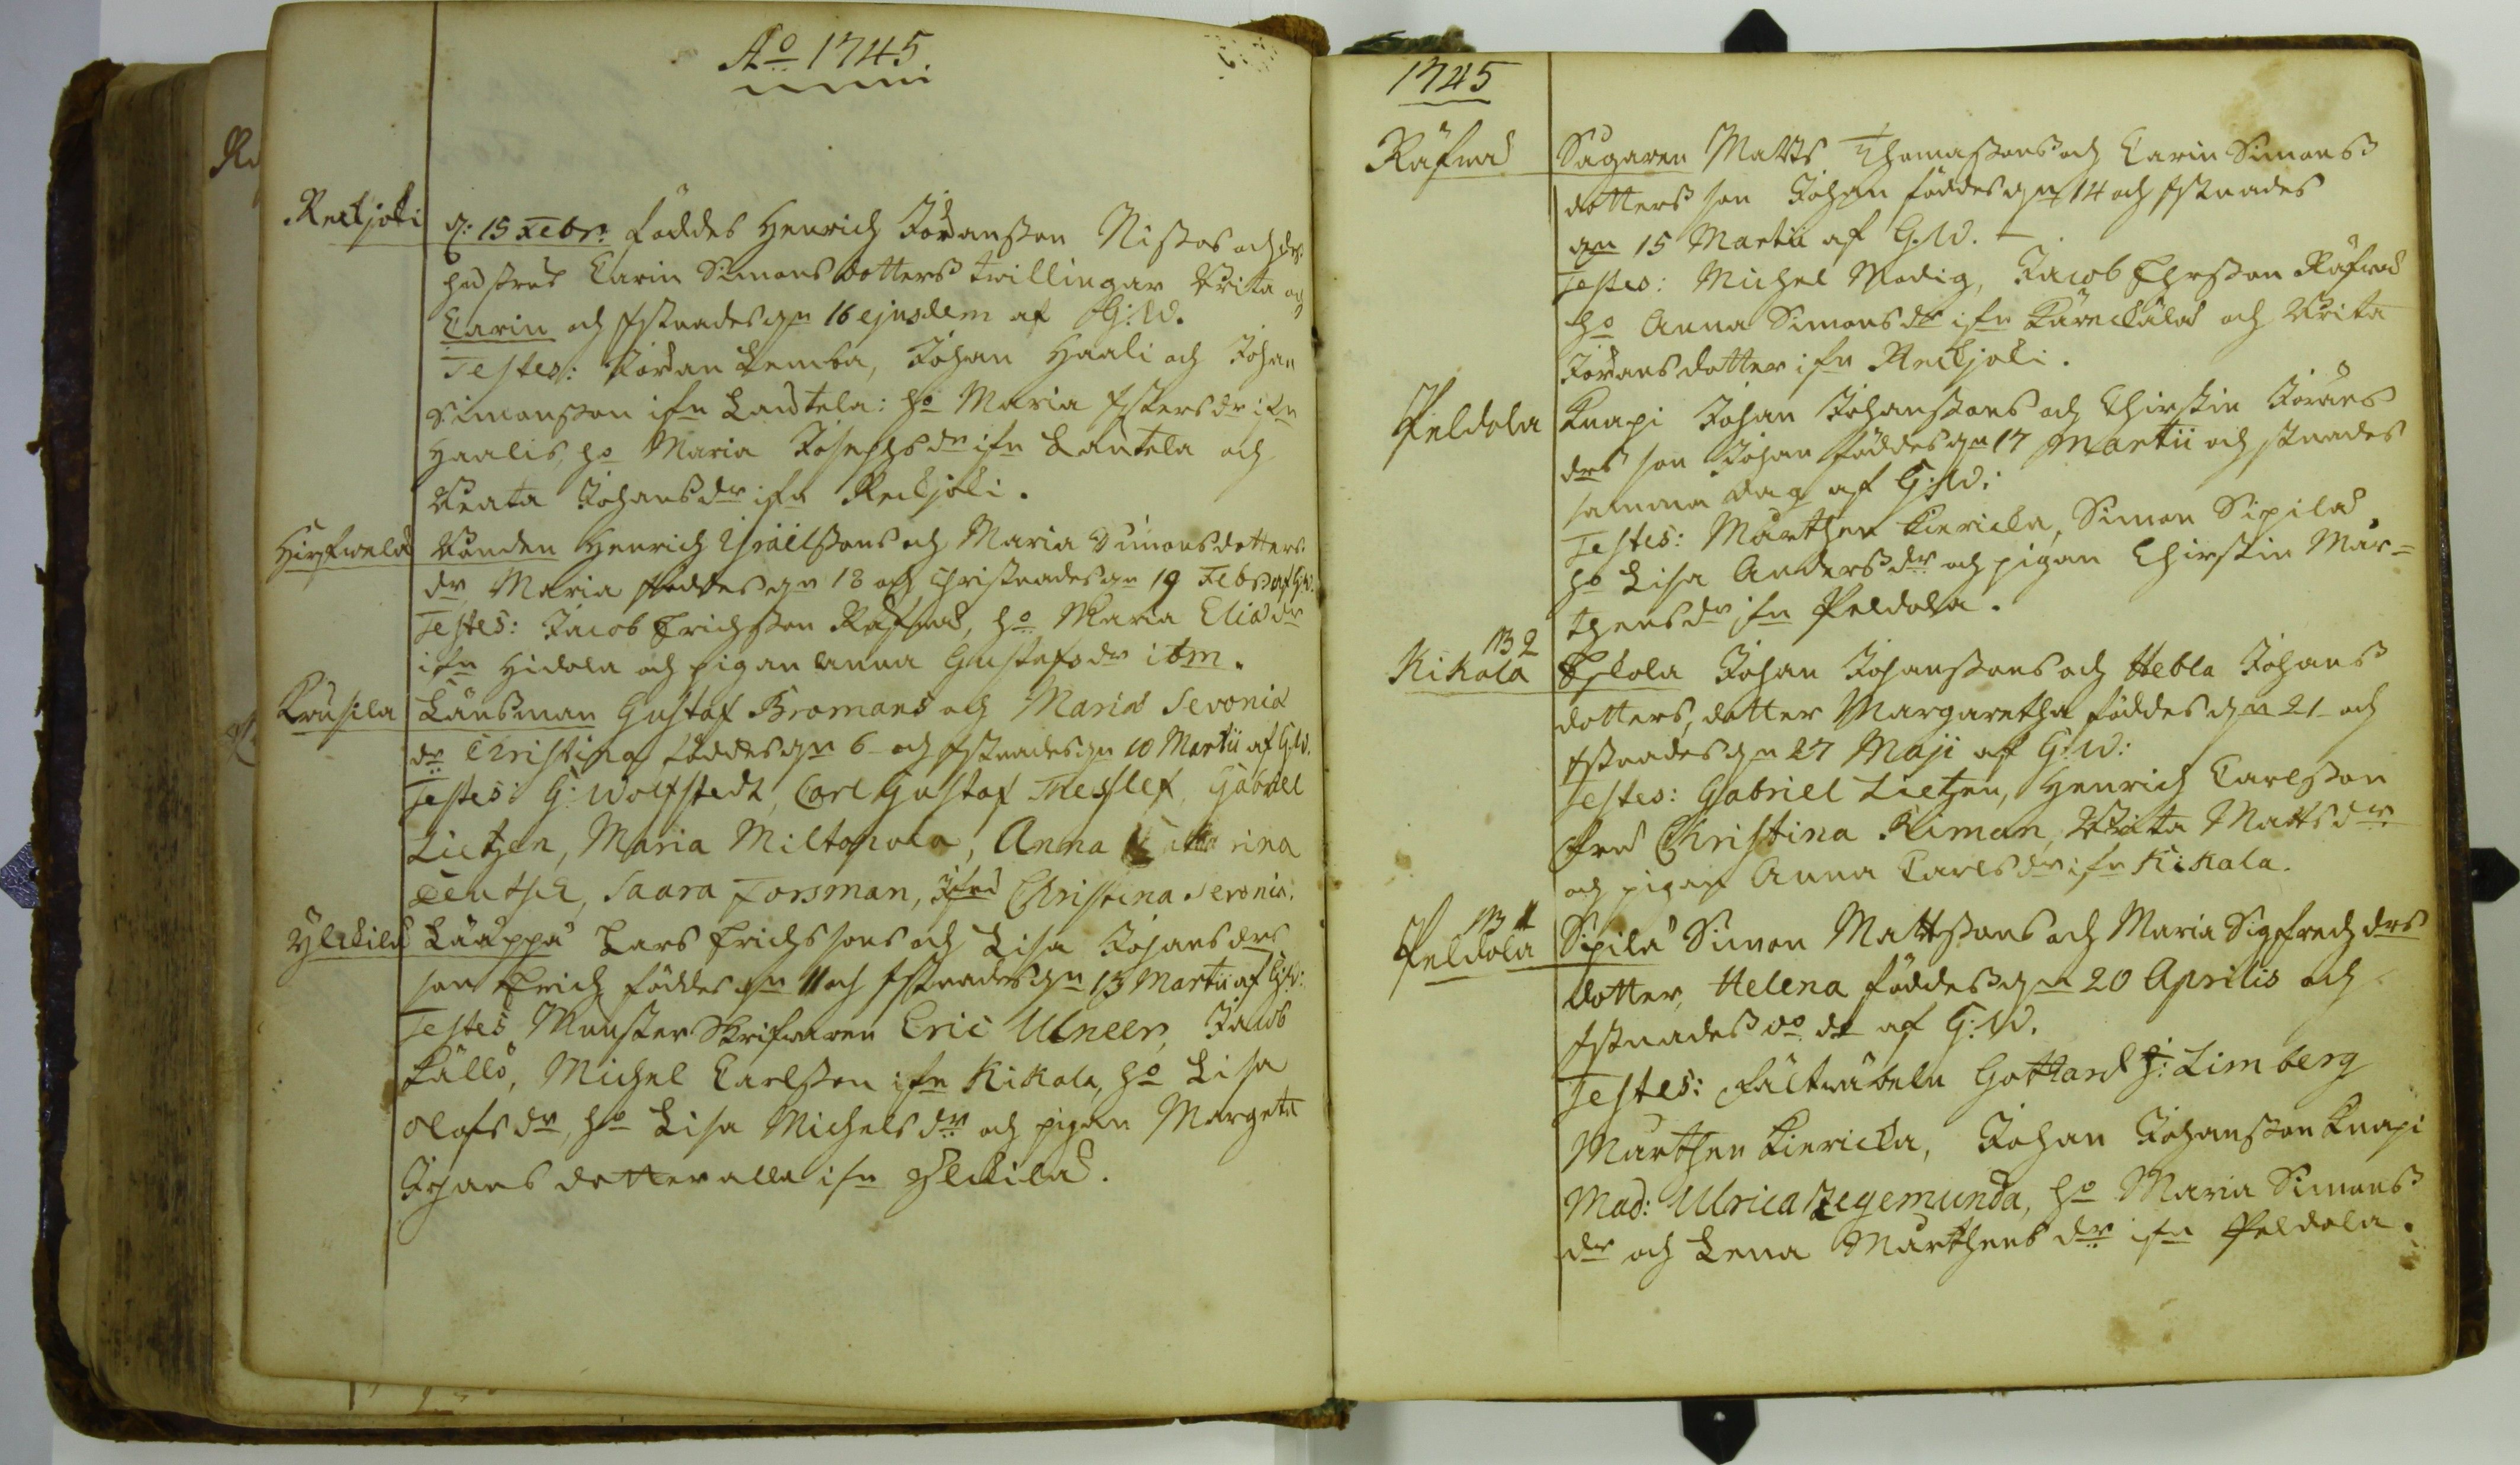 Ao 1745
Reckjoki
d: 15 Febr: föddes Henrich Jöransson Nissos och ds
hustrus Carin Simons dotters twillingar Brita och
Carin och xstnades dn 16 ejusdem af G:W.
Testes: Jöran Lemba, Johan Haali och Johan
Simonsson ifrn Lautela: ho Maria Estersdr ifrn
Haalis, ho Maria Josephsdr ifrn Lautela och
Beata Johansdr ifrn Reckjoki.
Hirfwelä
Bonden Henrich Israelssons och Maria Simonsdotters
dr Maria föddes dn 18 och Christnades dn 19 Febr af G:W.
Testes: Jacob Erichsson Räfwä, ho Maria Eliædr
ifrn Hidola och pigan Anna Gustafsdr ibm.
Krusila
Länsman Gustaf Bromans och Maria Sevonia
dr Christina föddes dn 6 och xstnades dn 10 Martii af G:W.
Testes: G: Wolfstedt, Carl Gustaf Thesslef, Gabriel
Lietzen, Maria Miltopola, Anna Catharina
Teutsch, Saara Forsman, Jfru Christina Sevonia.
Ylikilä
Lääppä Lars Erichssons och Lisa Johansdrs
son Erich föddes dn 11 och xstnades dn 13 Martii af G:W:
Testes Munster Skrifwaren Eric Ulneer, Jacob
Källö, Michel Carlsson ifrn Kikola, ho Lisa
Olofsdr, ho Lisa Michelsdr och pigan Margeta
Johans dotter alla ifrn Ylikilä.
1745
Räfwä
Sågaren Matts Thomassons och Carin Simons
dotters son Johan föddes dn 14 och xstnades
dn 15 Martii af G:W.
Testes: Michel Modig, Jacob Ersson Räfwä
ho Anna Simonsdr ifrn Kärckälä och Brita
Jöransdotter ifrn Reckjoki.
Peldola
Knapi Johan Johanssons och Chirstin Jörans
drs son Johan föddes dn 17 Martii och xstnades
samma dag af G:W:
Testes: Mårthen Kiericka, Simon Sipilä
ho Lisa Andersdr och pigan Chirstin Mår=
thensdr ifrn Peldola.
NB 2
Kikola
Eskola Johan Johanssons och Hebla Johans
dotters, dotter Margaretha föddes dn 21 och
xstnades dn 27 Maji af G:W:
Testes: Gabriel Lietzen, Henrich Carlsson
fru Christina Riman, Brita Mattsdr
och pigan Anna Carlsdr ifrn Kikala.
NB 1
Peldola
Sipilä Simon Mattssons och Maria Sigfredz drs
dotter, Helena föddes dn 20 Aprilis och
xstnades do de af G:W.
Testes: fältwäbeln Gotthard J: Limberg
Mårthen Kiericka, Johan Johansson Knapi
Mad: Ulrica Zegemunda, ho Maria Simons
dr och Lena Mårthens dr ifrn Peldola.